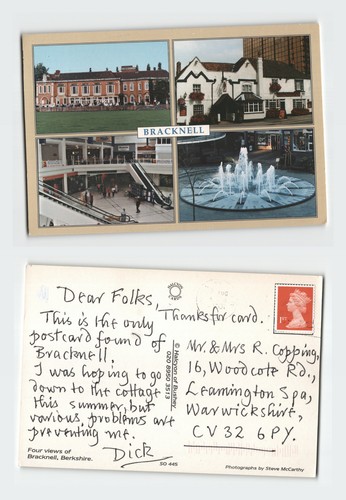 BRACKNELL
Dear Folks,
Thanks for card.
This is the only
postcard found of
Bracknell.
I was hoping to go
down to the cottage
this summer, but
various problems are
preventing me.
Dick
Four views of
Bracknell, Berkshire.
SO 445
© Halcyon of Bushey.
020 8950 3513
1ST
Mr. & Mrs R. Copping,
16, Woodcote Rd.,
Leamington Spa,
Warwickshire,
CV32 6PY.
Photographs by Steve McCarthy